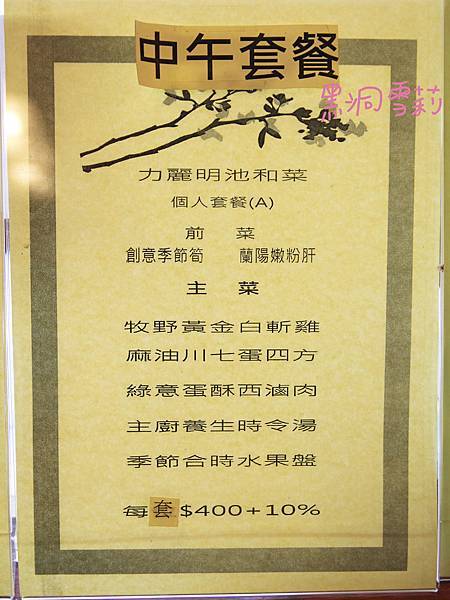 中午套餐
黑洞雪莉
力麗明池和菜
個人套餐(A)
前 菜
創意季節筍 蘭陽嫩粉肝
主 菜
牧野黃金白斬雞
麻油川七蛋四方
綠意蛋酥西滷肉
主廚養生時令湯
季節合時水果盤
每套$400+10%